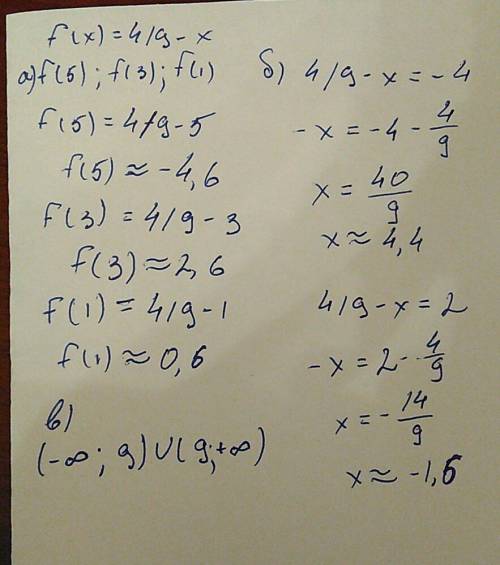 f(x)=4/9-x
a) f(5); f(3); f(1)
f(5)=4/9-5
f(5)≈-4,6
f(3)=4/9-3
f(3)≈2,6
f(1)=4/9-1
f(1)≈0,6
в)
(-∞; 9)∪(9;+∞)
б) 4/9-x=-4
-x=-4-4/9
x=40/9
x≈4,4
4/9-x=2
-x=2-4/9
x=-14/9
x≈-1,6